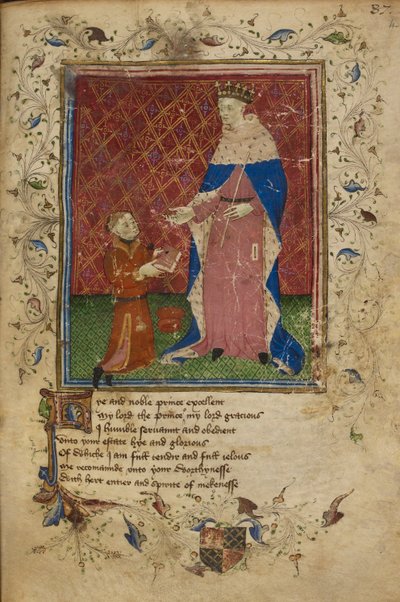 37
Hye and noble prince excellent
My lord the prince my lord gracious
I humble servaunt and obedient
Unto your estate hye and glorious
Of whiche I am full tendir and full ielous
Me recomaunde unto your worthynesse
With hert entier and spirite of mekenesse